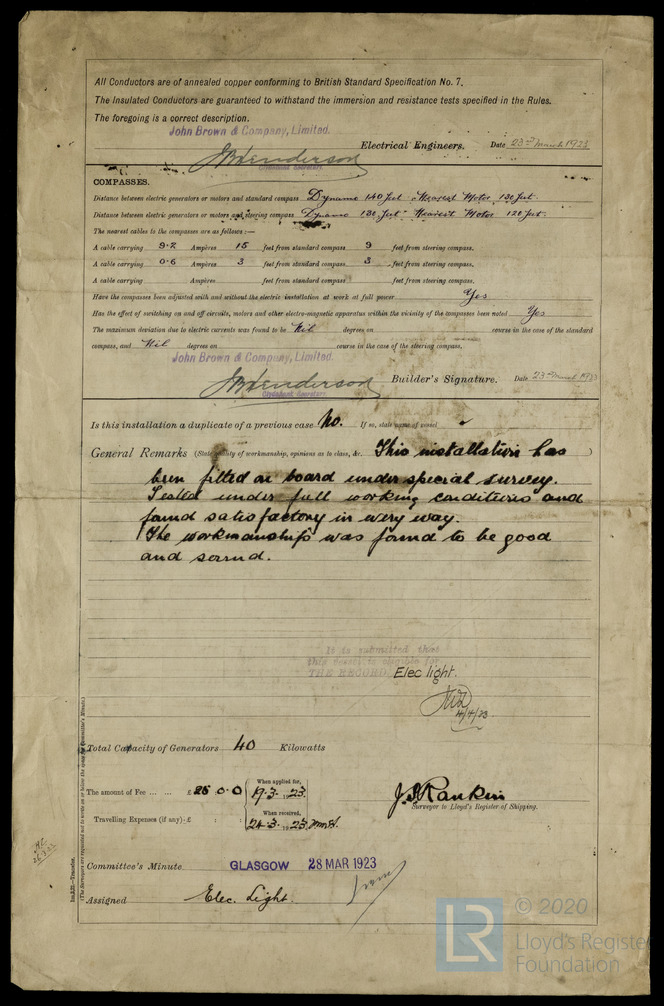 All Conductors are of annealed copper conforming to British Standard Specification No. 7.
The Insulated Conductors are guaranteed to withstand the immersion and resistance tests specified in the Rules.
The foregoing is a correct description.
John Brown & Company, Limited.
JBHenderson Electrical Engineers. Date 23rd March 1923
Clydebank Secretary.
COMPASSES.
Distance between electric generators or motors and standard compass Dynamo 140 feet Nearest Motor 130 feet.
Distance between electric generators or motors and steering compass Dynamo 130 feet Nearest Motor 120 feet.
The nearest cables to the compasses are as follows:—
A cable carrying 9.2 Ampères 15 feet from standard compass 9 feet from steering compass.
A cable carrying 0.6 Ampères 3 feet from standard compass 3 feet from steering compass.
A cable carrying Ampères feet from standard compass feet from steering compass.
Have the compasses been adjusted with and without the electric installation at work at full power Yes
Has the effect of switching on and off circuits, motors and other electro-magnetic apparatus within the vicinity of the compasses been noted Yes
The maximum deviation due to electric currents was found to be Nil degrees on course in the case of the standard
compass, and Nil degrees on course in the case of the steering compass.
John Brown & Company, Limited.
JBHenderson Builder's Signature. Date 23rd March 1923
Clydebank Secretary.
Is this installation a duplicate of a previous case No. If so, state name of vessel
General Remarks (State quality of workmanship, opinions as to class, &c. This installation has )
been fitted on board under special survey.
Tested under full working conditions and
found satisfactory in every way.
The workmanship was found to be good
and sound.
It is submitted that
this vessel is eligible for
THE RECORD. Elec light.
4/4/23
Total Capacity of Generators 40 Kilowatts
The amount of Fee ... ... £ 25 0 0 When applied for, 19.3.1923
J.S. Rankin
Surveyor to Lloyd's Register of Shipping.
Travelling Expenses (if any) £ : : When received, 24.3.1923
Committee's Minute GLASGOW 28 MAR 1923
Assigned Elec. Light.
Transfer.
(The Surveyors are requested not to write on or below the space for Committee's Minute.)
LR © 2020
Lloyd's Register
Foundation